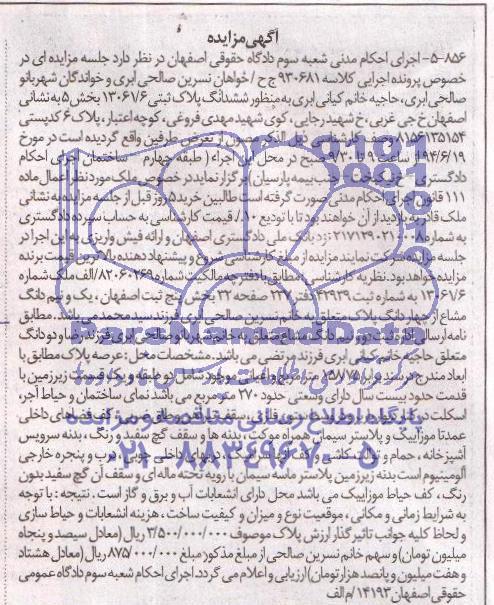 آگهی مزایده
۵-۸۵۶- اجرای احکام مدنی شعبه سوم دادگاه حقوقی اصفهان در نظر دارد جلسه مزایده ای در
خصوص پرونده اجرایی کلاسه ۹۳۰۶۸۱ ج ح / خواهان نسرین صالحی ابری و خواندگان شهربانو
صالحی ابری، حاجیه خانم کیانی ابری به منظور ششدانگ پلاک ثبتی ۱۳۰۶۷/۶ بخش ۵ به نشانی
اصفهان خ جی غربی، خ شهید رجایی، کوی شهید مهدی فروغی، کوچه اعتبار، پلاک ۶ کدپستی
۸۱۵۶۱۳۵۱۵۴ مصون از تعرض طرفین واقع گردیده است در مورخ
۹۴/۶/۱۹ ساعت ۹ تا ۹/۳۰ صبح در محل این اجراء ( طبقه چهارم ساختمان اجرای احکام
دادگستری بیمه پارسیان) برگزار نماید در خصوص ملک مورد نظر اعمال ماده
۱۱۱ قانون اجرای احکام مدنی صورت گرفته است طالبین خرید ۵ روز قبل از جلسه مزایده به نشانی
ملک قادر به بازدید از آن خواهند بود با تودیع ۱۰٪ قیمت کارشناسی به حساب سپرده دادگستری
به شماره نزد بانک ملی دادگستری اصفهان و ارائه فیش واریزی به این اجرا در
جلسه مزایده شرکت نمایند مزایده از مبلغ کارشناسی شروع و پیشنهاد دهنده بالاترین قیمت برنده
مزایده خواهد بود. نظریه کارشناسی: مطابق با دفترچه مالکیت شماره ۸۲۰۶۰۲۶۹/الف ملک شماره
۱۳۰۶۷/۶ به شماره ثبت ۴۲۹۳۹ دفتر صفحه ۳۲ بخش پنج ثبت اصفهان، یک و نیم دانگ
مشاع از چهار دانگ پلاک متعلق به خانم نسرین صالحی ابری فرزند سید محمد می باشد. مطابق
نامه ارسالی اداره ثبت دو و نیم دانگ مشاع متعلق به خانم شهربانو صالحی ابری فرزند رضا و دو دانگ
متعلق حاجیه خانم کیانی ابری فرزند مرتضی می باشد. مشخصات محل: عرصه پلاک مطابق با
ابعاد مندرج در سند برابر متر مربع و اعیان موجود شامل دو طبقه و یک قسمت زیرزمین با
قدمت حدود بیست سال دارای وسعتی حدود ۲۷۰ متر مربع می باشد نمای ساختمان و حیاط آجر،
اسکلت کف فضاهای داخلی
عمدتا موزاییک و پلاستر سیمان همراه موکت، بدنه ها و سقف گچ سفید و رنگ، بدنه سرویس
آشپزخانه، حمام و توالت کاشی و کف دربهای داخلی چوبی، درب و پنجره خارجی
آلومینیوم است بدنه زیرزمین پلاستر ماسه سیمان با رویه تخته ماله ای و سقف آن گچ سفید بدون
رنگ، کف حیاط موزاییک می باشد محل دارای انشعابات آب و برق و گاز است. نتیجه: با توجه
به شرایط زمانی و مکانی، موقعیت نوع و میزان و کیفیت ساخت، هزینه انشعابات و حیاط سازی
و لحاظ کلیه جوانب تاثیر گذار ارزش پلاک موصوف ۳/۵۰۰/۰۰۰/۰۰۰ ریال (معادل سیصد و پنجاه
میلیون تومان) و سهم خانم نسرین صالحی از مبلغ مذکور مبلغ ۸۷۵/۰۰۰/۰۰۰ ریال (معادل هشتاد
و هفت میلیون و پانصد هزار تومان) ارزیابی و اعلام می گردد. اجرای احکام شعبه سوم دادگاه عمومی
حقوقی اصفهان ۱۴۱۹۳/م الف
ParsNamadData
پایگاه اطلاع رسانی مناقصه و مزایده
۰۲۱-۸۸۳۴۹۶۷۰-۵